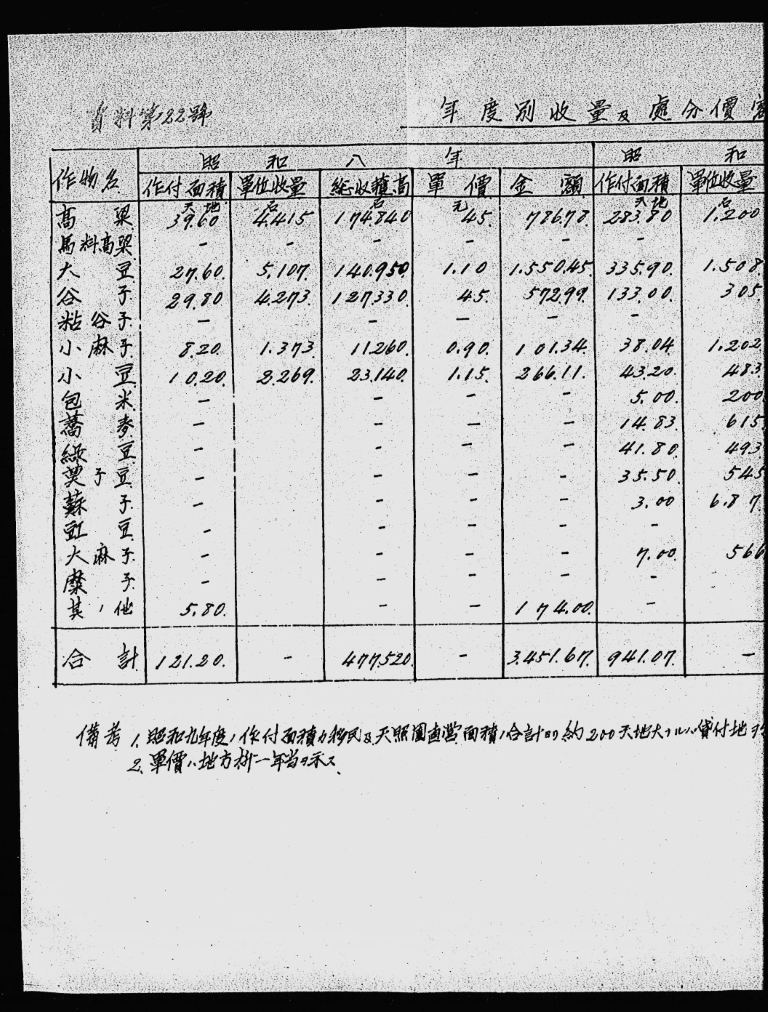 資料第22號
年度別收量及處分價
昭 和 八 年 昭 和
作物名 作付面積 單位收量 總收穫高 單價 金額 作付面積 單位收量
天地 石 石 元 天地 石
高粱 39.60 4.415 174.840 45. 78678 283.80 1.200
馬料高粱 - - - - -
大豆 27.60. 5.107. 140.950 1.10 1.550.45. 335.90. 1.508.
谷子 29.80 4.273. 127.330. 45. 57299. 133.00. 305.
粘谷子 - - - - -
小麻子 8.20. 1.373. 11260. 0.90. 101.34. 38.04 1.202
小豆 10.20. 2.269. 23.140. 1.15. 266.11. 43.20. 483.
包米 - - - - 5.00. 200
蕎麥 - - - - 14.83. 615
綠豆 - - - - 41.80. 493
子豆 - - - - 35.50. 545
蘇子 - - - - 3.00 6.87.
豇豆 - - - - -
大麻子 - - - - 7.00. 566
糜子 - - - - -
其ノ他 5.80. - - 174.00. -
合計 121.20. - 477.520. - 3.451.67. 941.07. -
備考 1. 昭和九年度ノ作付面積カ移民及天照園直營面積ノ合計ヨリ約200天地大ナルハ貸付地
2. 單價ハ地方拼一年当ヲ示ス